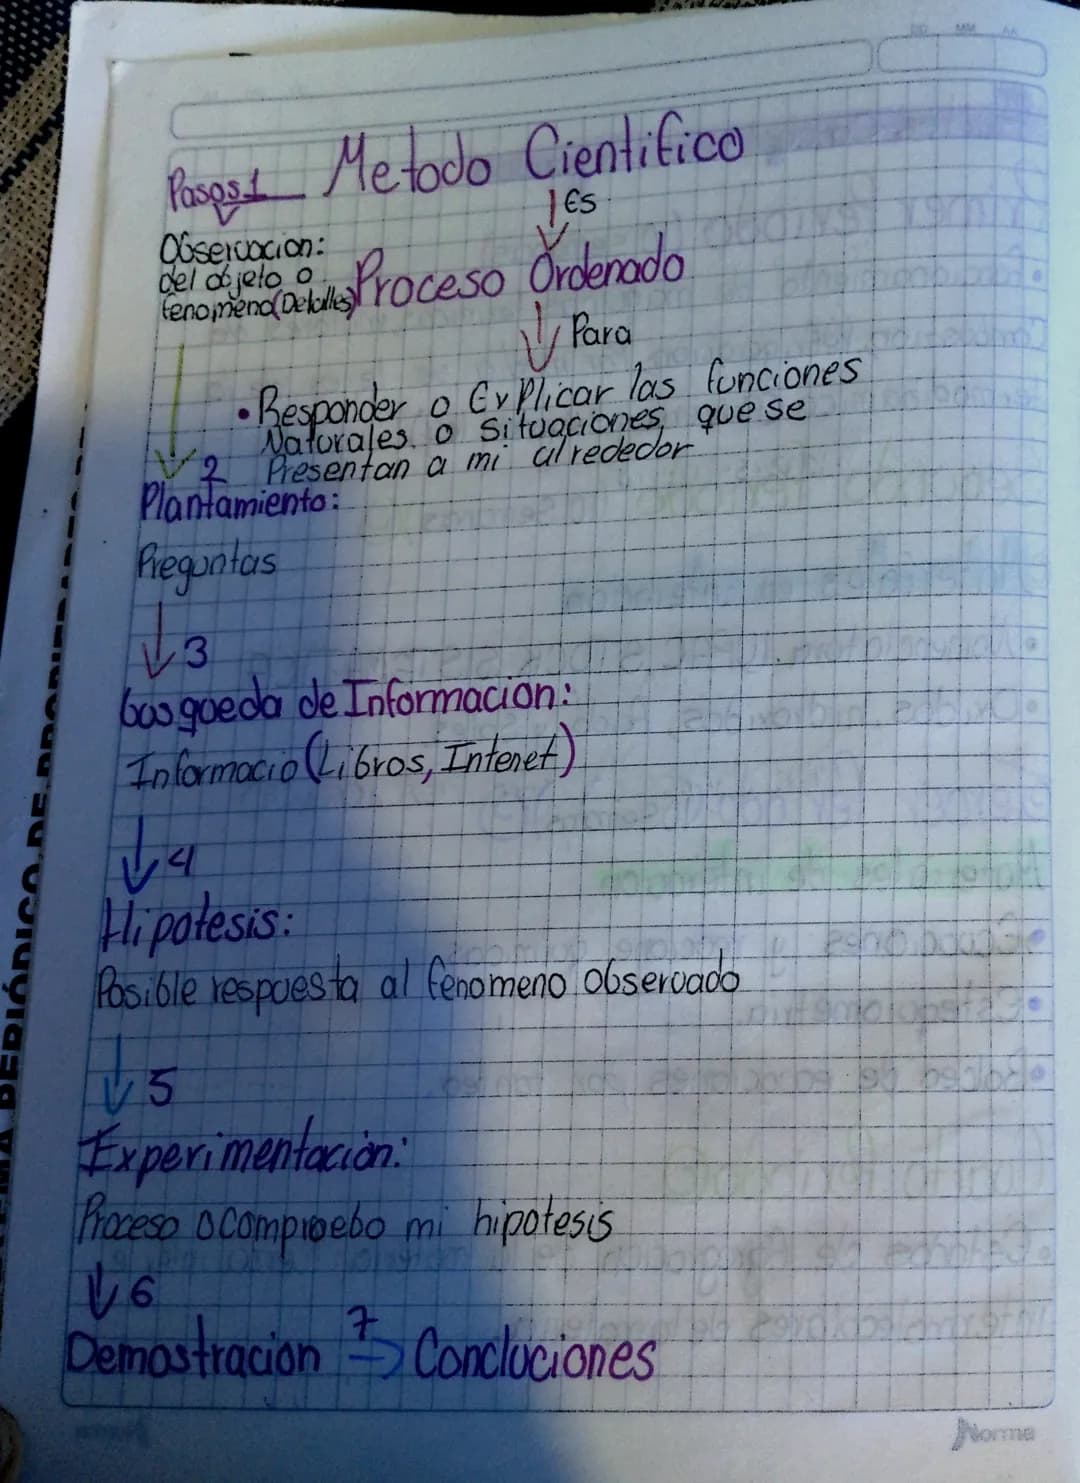 Metodo Cientifico
Pasos 1
Es
Observacion:
del objeto o
fenomeno(Detalles)
Proceso Ordenado
Para
• Responder o Explicar las funciones
Naturales. o situaciones, que se
Presentan a mi alrededor
2
Plantamiento:
Preguntas
3
busqueda de Informacion:
Informacio (Libros, Intenet)
4
Hipotesis:
Posible respuesta al fenomeno observado
5
Experimentación:
Proceso o compruebo mi hipotesis
6
Demostracion 7 Concluciones
Norma